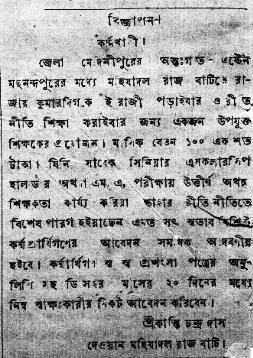 বিজ্ঞাপন।
কর্ম্মখালী।
জেলা মেদনীপুরের অন্তঃগত
মধ্যে মহিষাদল রাজ বাটিতে রা-
জার কুমারদিগকে ইংরাজী পড়াইবার ও রীত
নীতি শিক্ষা করাইবার জন্য একজন উপযুক্ত
শিক্ষকের প্রয়োজন। মাসিক বেতন ১০০ এক শত
টাকা। যিনি সাবেক সিনিয়ার এসকলারসিপ
হালডর অথবা এম, এ, পরীক্ষায় উত্তীর্ণ অথচ
শিক্ষকতা কার্য্য করিয়া রীতিনীতিতে
বিশেষ পারগ হইয়াছেন এমত সৎ স্বভাব বিশিষ্ট
কর্ম্মপ্রার্থিগণের আবেদন সমধিক আদরণীয়
হইবে। কর্ম্মার্থিগণ স্ব স্ব প্রশংসা পত্রের অনু-
লিপি সহ ডিসেম্বর মাসের ২০ দিনের মধ্যে
নিম্ন স্বাক্ষরকারীর নিকট আবেদন করিবেন।
শ্রীকান্তি চন্দ্র দাস
দেওয়ান মহিষাদল রাজ বাটি।